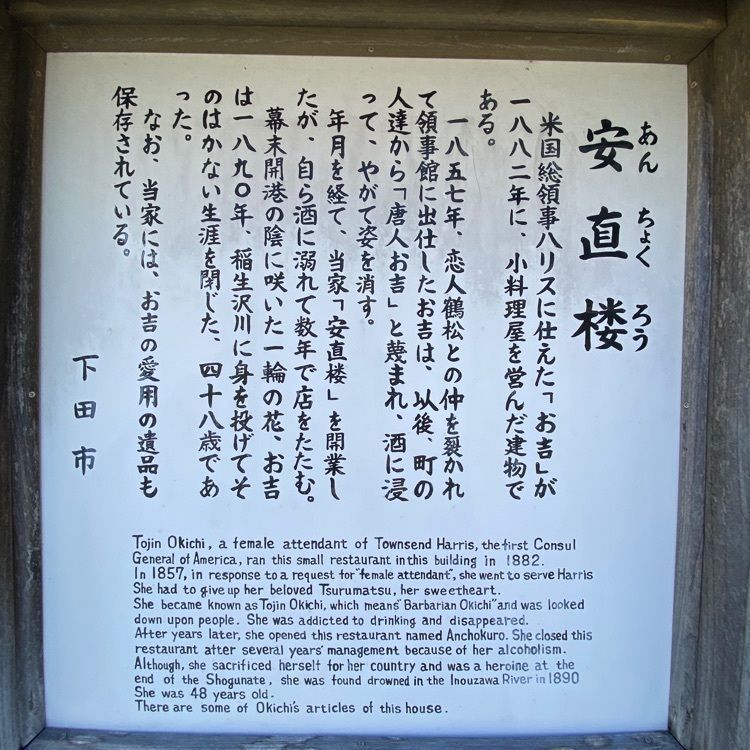 安直楼
あんちょくろう
米国総領事ハリスに仕えた「お吉」が
一八八二年に、小料理屋を営んだ建物で
ある。
一八五七年、恋人鶴松との仲を裂かれ
て領事館に出仕したお吉は、以後、町の
人達から「唐人お吉」と蔑まれ、酒に浸
って、やがて姿を消す。
年月を経て、当家「安直楼」を開業し
たが、自ら酒に溺れて数年で店をたたむ。
幕末開港の陰に咲いた一輪の花、お吉
は一八九〇年、稲生沢川に身を投げてそ
のはかない生涯を閉じた、四十八歳であ
った。
なお、当家には、お吉の愛用の遺品も
保存されている。
下田市
Tojin Okichi, a female attendant of Townsend Harris, the first Consul
General of America, ran this small restaurant in this building in 1882.
In 1857, in response to a request for "female attendant", she went to serve Harris
She had to give up her beloved Tsurumatsu, her sweetheart.
She became known as Tojin Okichi, which means" Barbarian Okichi" and was looked
down upon people. She was addicted to drinking and disappeared.
After years later, she opened this restaurant named Anchokuro. She closed this
restaurant after several years' management because of her alcoholism.
Although, she sacrificed herself for her country and was a heroine at the
end of the Shogunate, she was found drowned in the Inouzawa River in 1890
She was 48 years old.
There are some of Okichi's articles of this house.